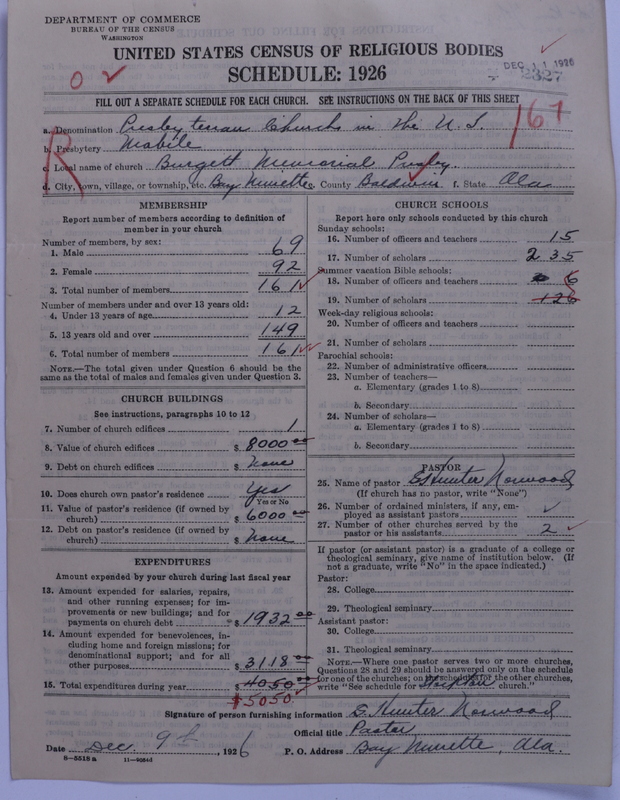 DEPARTMENT OF COMMERCE
BUREAU OF THE CENSUS
WASHINGTON
UNITED STATES CENSUS OF RELIGIOUS BODIES
SCHEDULE: 1926
DEC 11 1926
2327
FILL OUT A SEPARATE SCHEDULE FOR EACH CHURCH. SEE INSTRUCTIONS ON THE BACK OF THIS SHEET
167
R
a. Denomination Presbyterian Church in the U.S.
b. Presbytery Mobile
c. Local name of church Burgett Memorial Presby.
d. City, town, village, or township, etc. Bay Minette e. County Baldwin f. State Ala
MEMBERSHIP
Report number of members according to definition of
member in your church
Number of members, by sex:
1. Male 69
2. Female 92
3. Total number of members 161
Number of members under and over 13 years old:
4. Under 13 years of age 12
5. 13 years old and over 149
6. Total number of members 161
NOTE.—The total given under Question 6 should be
same as the total of males and females given under Question 3.
CHURCH BUILDINGS
See instructions, paragraphs 10 to 12
7. Number of church edifices 1
8. Value of church edifices $ 8000.00
9. Debt on church edifices $ None
10. Does church own pastor's residence Yes
Yes or No
11. Value of pastor's residence (if owned by
church) $ 6000.00
12. Debt on pastor's residence (if owned by
church) $ None
EXPENDITURES
Amount expended by your church during last fiscal year
13. Amount expended for salaries, repairs,
and other running expenses; for im-
provements or new buildings; and for
payments on church debt $ 1932.00
14. Amount expended for benevolences, in-
cluding home and foreign missions; for
denominational support; and for all
other purposes $ 3118.00
15. Total expenditures during year $ 4050.00
$5050.
CHURCH SCHOOLS
Report here only schools conducted by this church
Sunday schools:
16. Number of officers and teachers 15
17. Number of scholars 235
Summer vacation Bible schools:
18. Number of officers and teachers 6
19. Number of scholars 126
Week-day religious schools:
20. Number of officers and teachers
21. Number of scholars
Parochial schools:
22. Number of administrative officers
23. Number of teachers—
a. Elementary (grades 1 to 8)
b. Secondary
24. Number of scholars—
a. Elementary (grades 1 to 8)
b. Secondary
PASTOR
25. Name of pastor E. Hunter Norwood
(If church has no pastor, write "None")
26. Number of ordained ministers, if any, em-
ployed as assistant pastors
27. Number of other churches served by the
pastor or his assistants 2
If pastor (or assistant pastor) is a graduate of a college or
theological seminary, give name of institution below. (If
not a graduate, write "No" in the space indicated.)
Pastor:
28. College
29. Theological seminary
Assistant pastor:
30. College
31. Theological seminary
NOTE.—Where one pastor serves two or more churches,
Questions 28 and 29 should be answered only on the schedule
for one of the churches; on the schedules for the other churches,
write "See schedule for church."
Signature of person furnishing information E. Hunter Norwood
Official title Pastor
Date Dec. 9th, 1926 P. O. Address Bay Minette, Ala.
8—5518 a